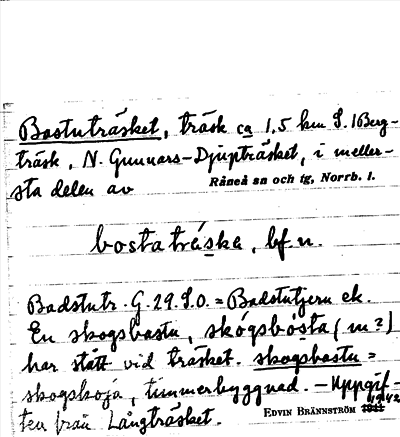 Bastuträsket, träsk ca 1,5 km S. I Berg-
träsk, N. Gunnars-Djupträsket, i meller-
sta delen av Råneå sn och tg, Norrb. l.
bostaträske, bf. n.
Badstutr. G. 29. S.O. = Badstutjern ek.
En skogsbastu, skógsbòsta (m?)
har stått vid träsket. skogsbastu =
skogskoja, timmerbyggnad. – Uppgif-
ten från Långträsket. EDVIN BRÄNNSTRÖM 1942